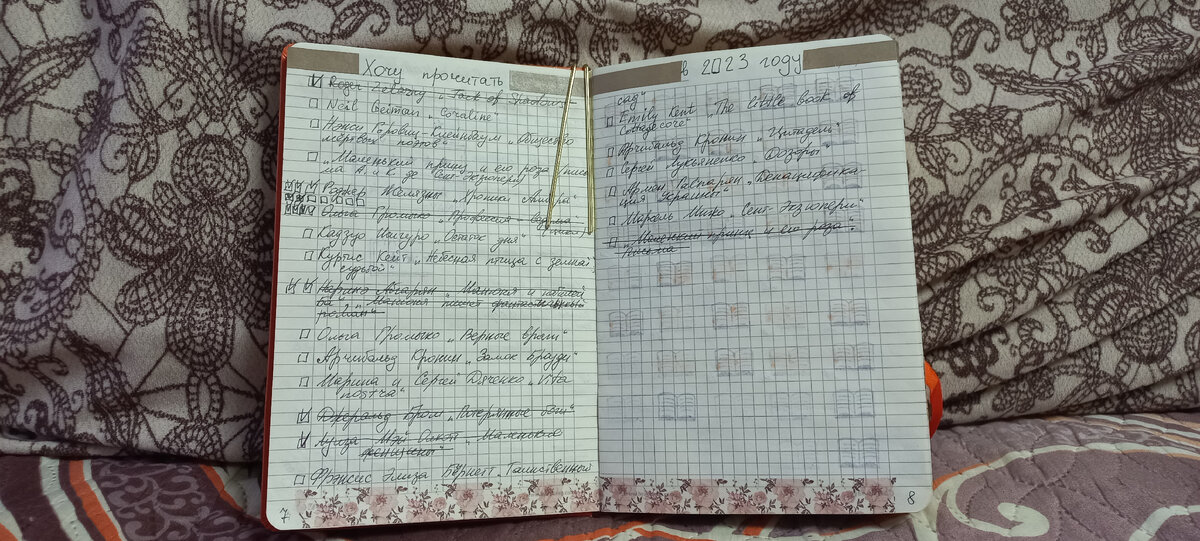 Хочу прочитать
Roger Zelazny „Jack of Shadows"
Neil Geiman „Coraline"
Нэнси Горовиц-Клейнбаум „Общество
мёртвых поэтов"
„Маленький принц и его роза. Пись
ма А. и К. де Сент-Экзюпери
Роджер Желязны „Хроники Амбера"
Ольга Громыко „Профессия: ведьма"
Кадзуо Исигуро „Остаток дня"
Куртис Кейт „Небесная птица с земной
судьбой"
Наринэ Абгарян „Манюня
„Манюня пишет фантастичный
роман"
Ольга Громыко „Верные враги"
Арчибальд Кронин „Замок Броуди"
Марина и Сергей Дяченко „Vita
nostra"
Джеральд Бром „Потерянные боги"
Луиза Мэй Олкотт „Маленькие
женщины"
Фрэнсис Элиза Бёрнетт „Таинственный
7
в 2023 году
сад"
Emily Kent „The little book of
Cottagecore"
Арчибальд Кронин „Цитадель"
Сергей Лукьяненко „Дозоры"
Армен Гаспарян „Денацифика-
ция Украины"
Марсель Мижо „Сент-Экзюпери"
„Маленький принц и его роза".
Письма
8